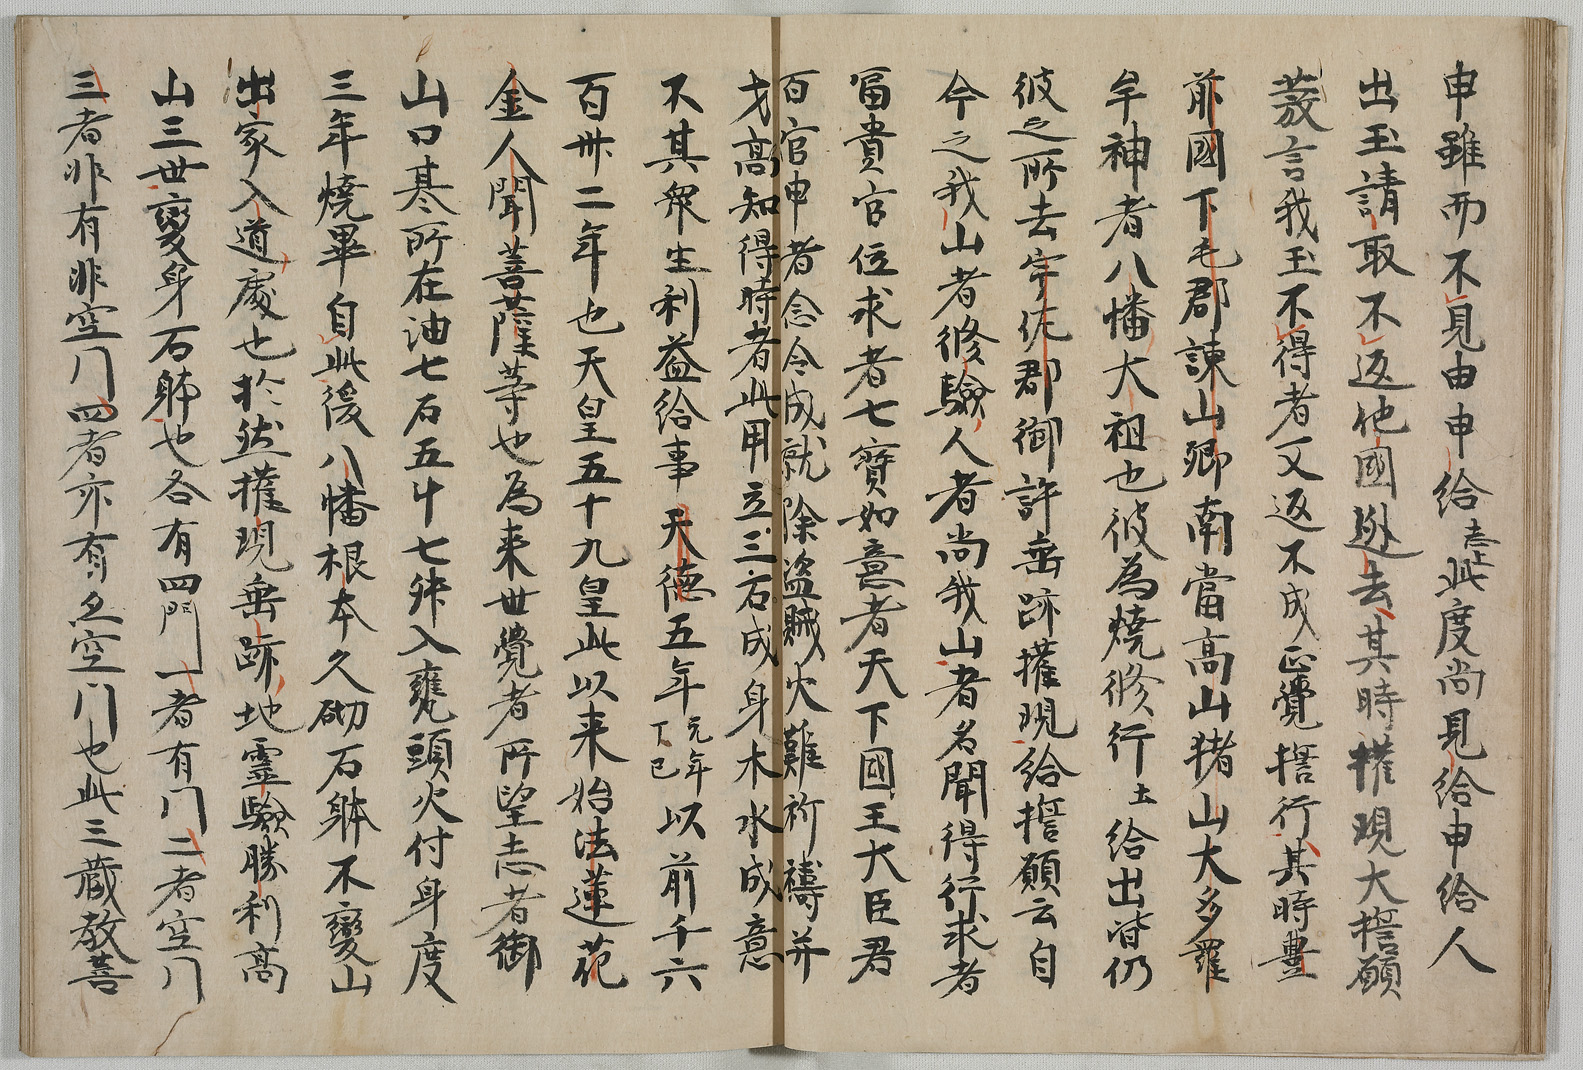 申雖而不見由申給志此度尚見給申給人
出玉請取不返他國逃去其時權現大揩願
䕃言我玉不得者又返不成正覺揩行其時豊
前國下毛郡諫山郷南當高山猪山大多羅
牟神者八幡大祖也彼為燒修行土給出皆仍
彼之所去宇佐郡御許垂跡權現給揩願云自
今之我山者修驗人者尚我山者名聞得行求者
冨貴官位求者七寳如意者天下國王大臣君
百官申者念令成就除盗賊火難祈禱并
才高知得時者此用立三石成身木水成意
不其衆生利益給事天德五年元年丁巳以前千六
百卅二年也天皇五十九皇此以来始法蓮花
金人聞菩薩等也為来世覺者所望志者御
山口基所在油七石五斗七舛入甕頭火付身度
三年燒畢自此後八幡根本久砌石躰不變山
出家入道處也於然權現垂跡地霊驗勝利髙
山三世變身石躰也各有四門一者有門二者空門
三者非有非空門四者亦有亦空門也此三藏教菩